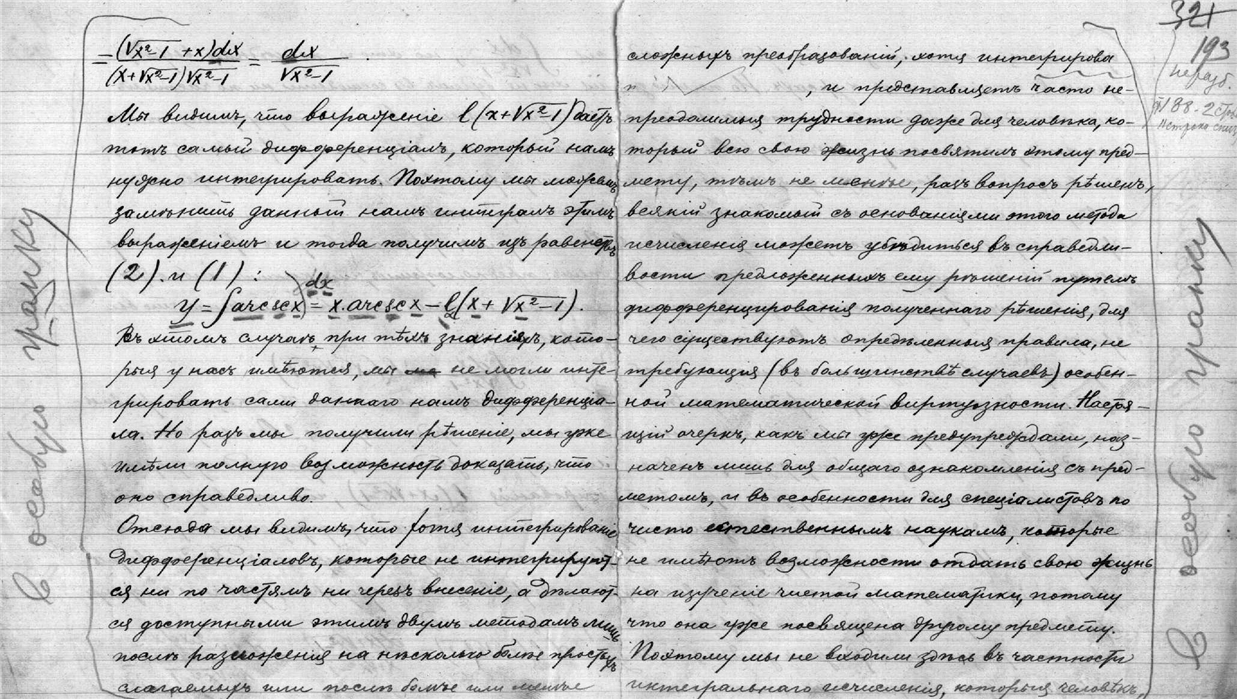 −(√x²−1 + x)dx / (x+√x²−1)√x²−1 = dx / √x²−1 .
Мы видимъ, что выраженіе l(x+√x²−1) даетъ
тотъ самый дифференціалъ, который намъ
нужно интегрировать. Поэтому мы можемъ
замѣнить данный намъ интегралъ этимъ
выраженіемъ и тогда получимъ изъ равенствъ
(2) и (1) :
y = ∫arcsc x dx = x.arcsc x − l(x + √x²−1).
Въ этомъ случаѣ, при тѣхъ знаніяхъ, кото-
рыя у насъ имѣются, мы не могли инте-
грировать сами даннаго намъ дифференціа-
ла. Но разъ мы получили рѣшеніе, мы уже
имѣли полную возможность доказать, что
оно справедливо.
Отсюда мы видимъ, что хотя интегрированіе
дифференціаловъ, которые не интегрируют-
ся ни по частямъ ни черезъ внесеніе, а дѣлают-
ся доступными этимъ двумъ методамъ лишь
послѣ разложенія на нѣсколько болѣе простыхъ
слагаемыхъ или послѣ болѣе или менѣе
321
193
неразб.
188 - 2
сложныхъ преобразованій, хотя интегрирова
, и представляетъ часто не-
преодолимыя трудности даже для человѣка, ко-
торый всю свою жизнь посвятилъ этому пред-
мету, тѣмъ не менѣе, разъ вопросъ рѣшенъ,
всякій знакомый съ основаніями этого метода
исчисленія можетъ убѣдиться въ справедли-
вости предложенныхъ ему рѣшеній путемъ
дифференцированія полученнаго рѣшенія, для
чего существуютъ опредѣленныя правила, не
требующія (въ большинствѣ случаевъ) особен-
ной математической виртуозности. Настоя-
щій очеркъ, какъ мы уже предупреждали, наз-
наченъ лишь для общаго ознакомленія съ пред-
метомъ, и въ особенности для спеціалистовъ по
чисто естественнымъ наукамъ, которые
не имѣютъ возможности отдать свою жизнь
на изученіе чистой математики, потому
что она уже посвящена другому предмету.
Поэтому мы не входили здѣсь въ частности
интегральнаго исчисленія, которыя человѣкъ,
В особую гранку
В особую гранку